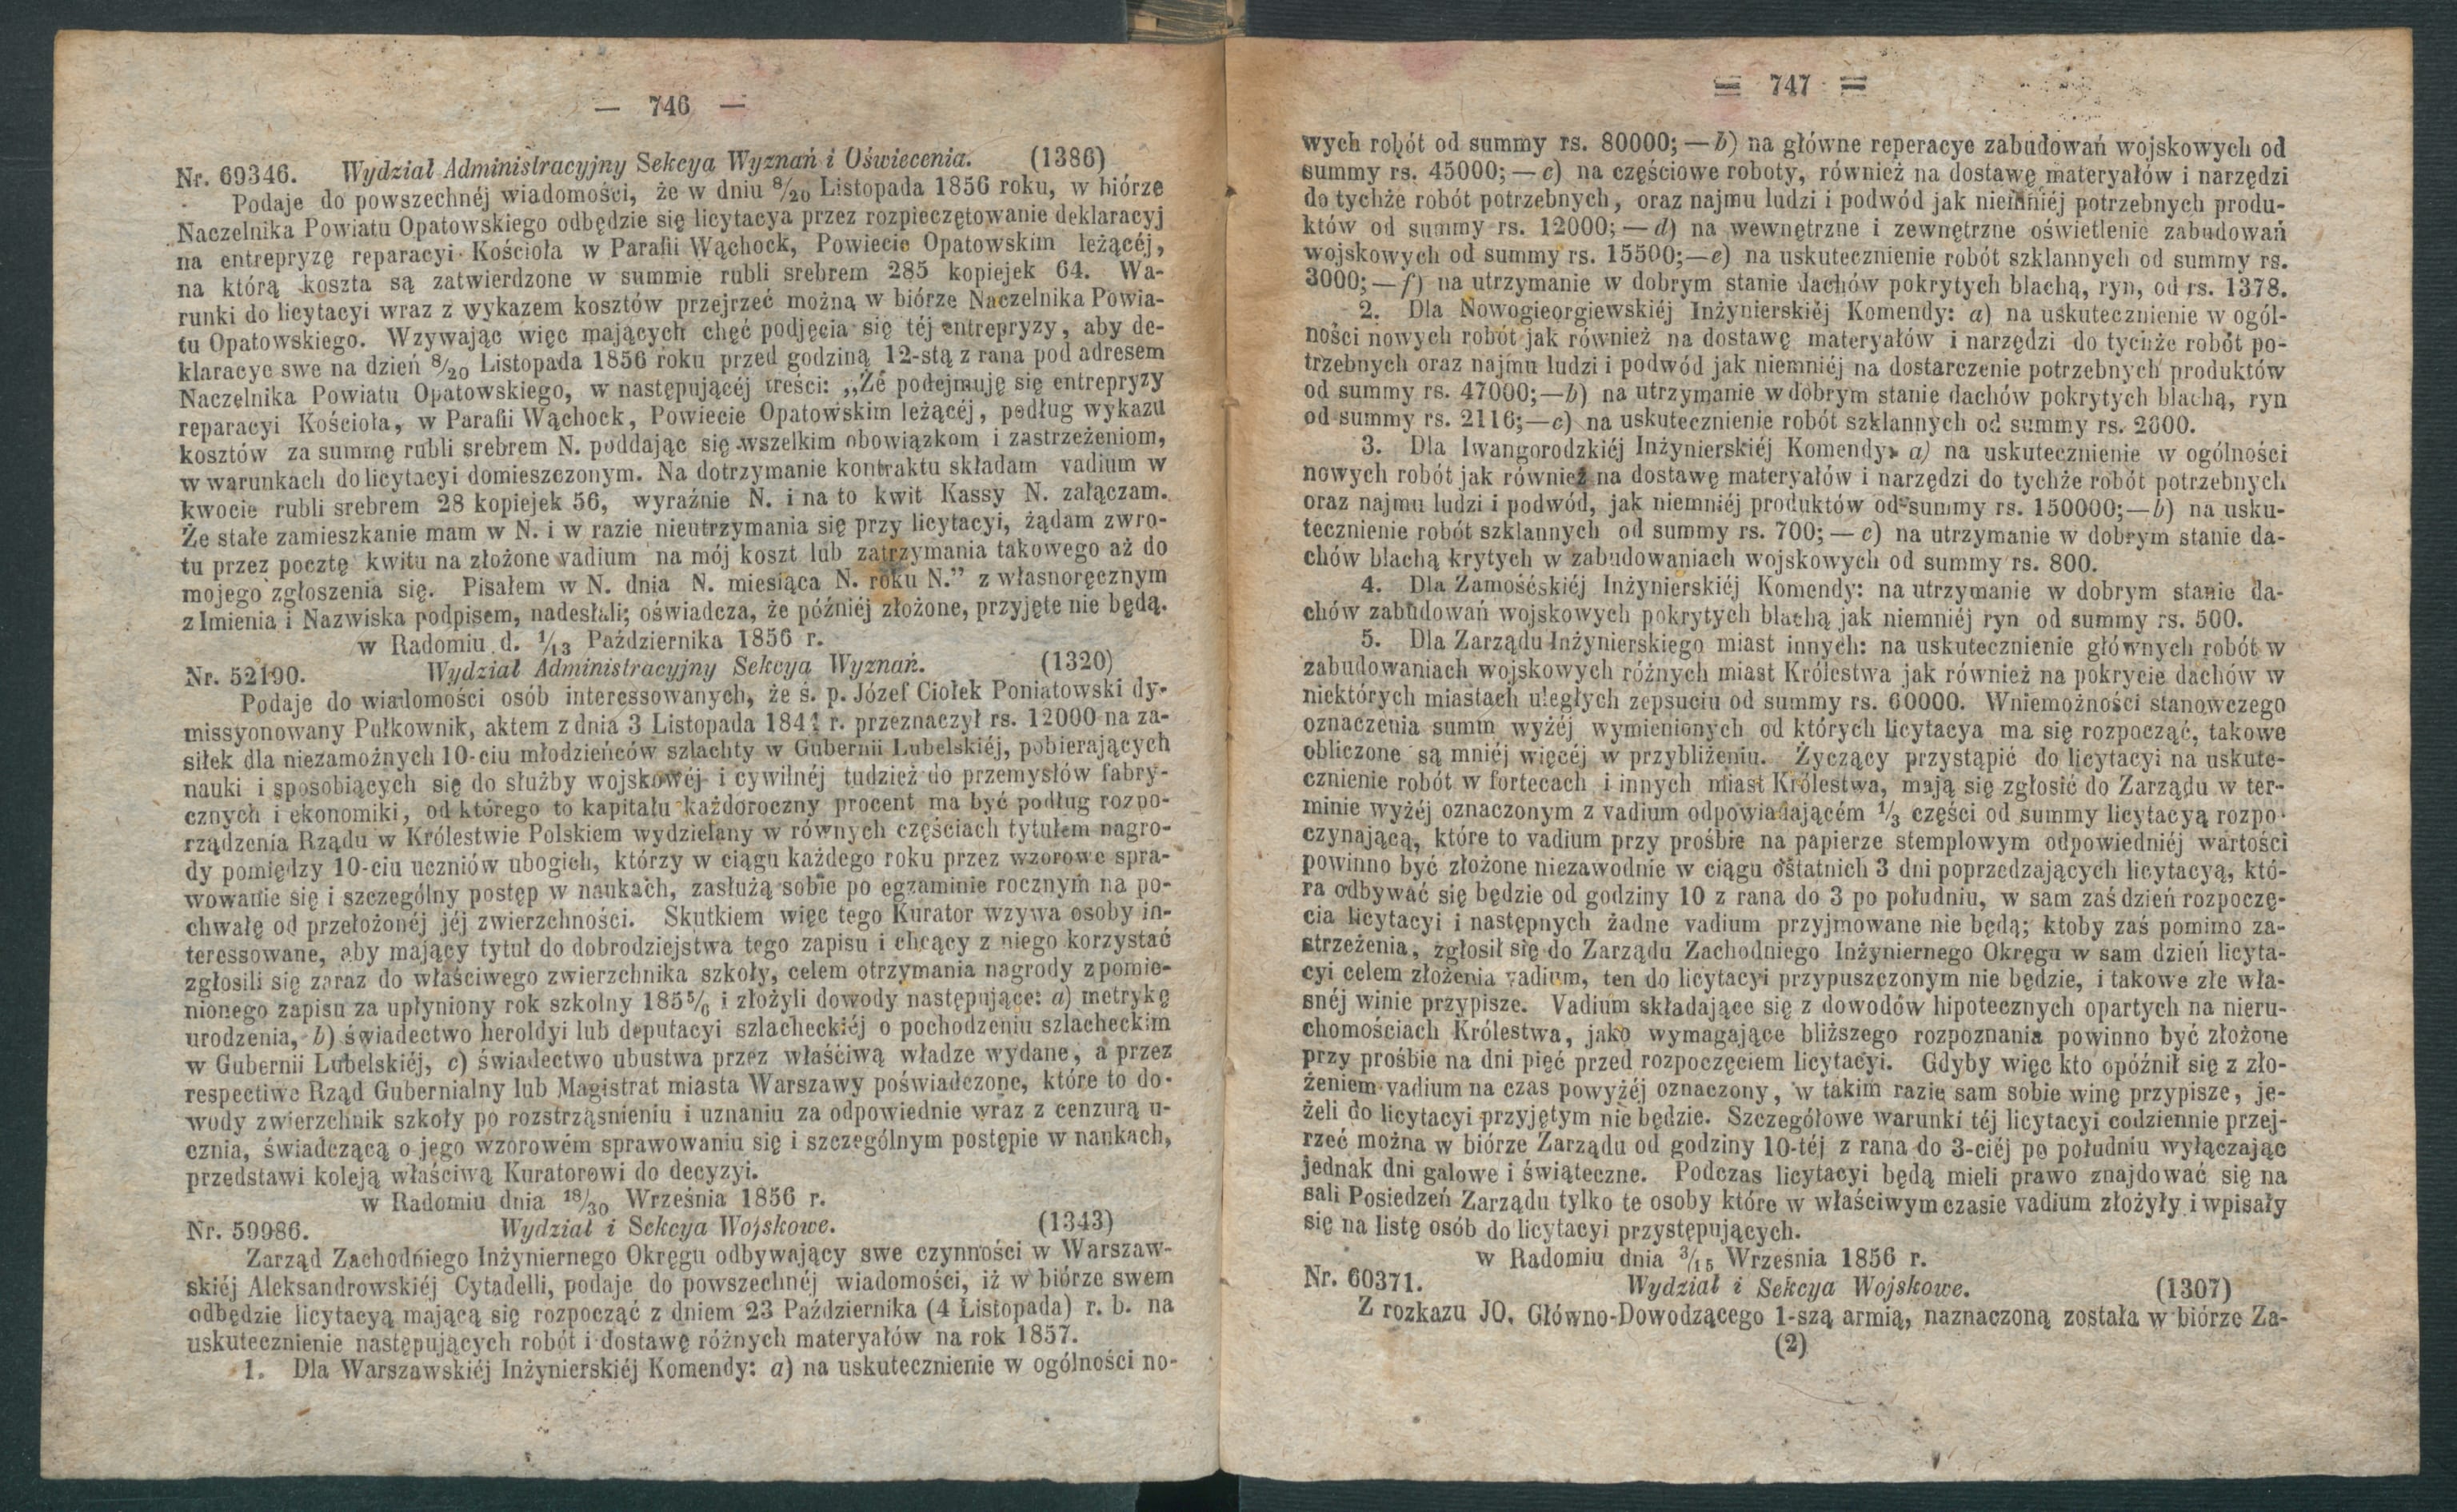 — 746 —
Nr. 69346. Wydział Administracyjny Sekcya Wyznań i Oświecenia. (1386)
Podaje do powszechnéj wiadomości, że w dniu 8/20 Listopada 1856 roku, w biórze
Naczelnika Powiatu Opatowskiego odbędzie się licytacya przez rozpieczętowanie deklaracyj
na entrepryzę reparacyi Kościoła w Parafii Wąchock, Powiecie Opatowskim leżącéj,
na którą koszta są zatwierdzone w summie rubli srebrem 285 kopiejek 64. Wa-
runki do licytacyi wraz z wykazem kosztów przejrzeć można w biórze Naczelnika Powia-
tu Opatowskiego. Wzywając więc mających chęć podjęcia się téj entrepryzy, aby de-
klaracye swe na dzień 8/20 Listopada 1856 roku przed godziną 12-stą z rana pod adresem
Naczelnika Powiatu Opatowskiego, w następującéj treści: „Że podejmuję się entrepryzy
reparacyi Kościoła, w Parafii Wąchock, Powiecie Opatowskim leżącéj, podług wykazu
kosztów za summę rubli srebrem N. poddając się wszelkim obowiązkom i zastrzeżeniom,
w warunkach do licytacyi domieszczonym. Na dotrzymanie kontraktu składam vadium w
kwocie rubli srebrem 28 kopiejek 56, wyraźnie N. i na to kwit Kassy N. załączam.
Że stałe zamieszkanie mam w N. i w razie nieutrzymania się przy licytacyi, żądam zwro-
tu przez pocztę kwitu na złożone vadium na mój koszt lub zatrzymania takowego aż do
mojego zgłoszenia się. Pisałem w N. dnia N. miesiąca N. roku N.” z własnoręcznym
z Imienia i Nazwiska podpisem, nadesłali; oświadcza, że późniéj złożone, przyjęte nie będą.
w Radomiu d. 1/13 Października 1856 r.
Nr. 52190. Wydział Administracyjny Sekcya Wyznań. (1320)
Podaje do wiadomości osób interessowanych, że ś. p. Józef Ciołek Poniatowski dy-
missyonowany Pułkownik, aktem z dnia 3 Listopada r. przeznaczył rs. 12000 na za-
siłek dla niezamożnych 10-ciu młodzieńców szlachty w Gubernii Lubelskiéj, pobierających
nauki i sposobiących się do służby wojskowéj i cywilnéj tudzież do przemysłów fabry-
cznych i ekonomiki, od którego to kapitału każdoroczny procent ma być podług rozpo-
rządzenia Rządu w Królestwie Polskiem wydzielany w równych częściach tytułem nagro-
dy pomiędzy 10-ciu uczniów ubogich, którzy w ciągu każdego roku przez wzorowe spra-
wowanie się i szczególny postęp w naukach, zasłużą sobie po egzaminie rocznym na po-
chwałę od przełożonéj jéj zwierzchności. Skutkiem więc tego Kurator wzywa osoby in-
teressowane, aby mający tytuł do dobrodziejstwa tego zapisu i chcący z niego korzystać
zgłosili się zaraz do właściwego zwierzchnika szkoły, celem otrzymania nagrody z pomie-
nionego zapisu za upłyniony rok szkolny 185 5/6 i złożyli dowody następujące: a) metrykę
urodzenia, b) świadectwo heroldyi lub deputacyi szlacheckiéj o pochodzeniu szlacheckim
w Gubernii Lubelskiéj, c) świadectwo ubustwa przez właściwą władze wydane, a przez
respectiwe Rząd Gubernialny lub Magistrat miasta Warszawy poświadczone, które to do-
wody zwierzchnik szkoły po rozstrząsnieniu i uznaniu za odpowiednie wraz z cenzurą u-
cznia, świadczącą o jego wzorowém sprawowaniu się i szczególnym postępie w naukach,
przedstawi koleją właściwą Kuratorowi do decyzyi.
w Radomiu dnia 18/30 Września 1856 r.
Nr. 59986. Wydział i Sekcya Wojskowe. (1343)
Zarząd Zachodniego Inżyniernego Okręgu odbywający swe czynności w Warszaw-
skiéj Aleksandrowskiéj Cytadelli, podaje do powszechnéj wiadomości, iż w biórze swem
odbędzie licytacyą mającą się rozpocząć z dniem 23 Października (4 Listopada) r. b. na
uskutecznienie następujących robót i dostawę różnych materyałów na rok 1857.
1. Dla Warszawskiéj Inżynierskiéj Komendy: a) na uskutecznienie w ogólności no-
= 747 =
wych robót od summy rs. 80000; — b) na główne reperacye zabudowań wojskowych od
summy rs. 45000; — c) na częściowe roboty, również na dostawę materyałów i narzędzi
do tychże robót potrzebnych, oraz najmu ludzi i podwód jak niemniéj potrzebnych produ-
któw od summy rs. 12000; — d) na wewnętrzne i zewnętrzne oświetlenie zabudowań
wojskowych od summy rs. 15500; — e) na uskutecznienie robót szklannych od summy rs.
3000; — f) na utrzymanie w dobrym stanie dachów pokrytych blachą, ryn, od rs. 1378.
2. Dla Nowogieorgiewskiéj Inżynierskiéj Komendy: a) na uskutecznienie w ogól-
ności nowych robót jak również na dostawę materyałów i narzędzi do tychże robót po-
trzebnych oraz najmu ludzi i podwód jak niemniéj na dostarczenie potrzebnych produktów
od summy rs. 47000; — b) na utrzymanie w dobrym stanie dachów pokrytych blachą, ryn
od summy rs. 2116; — c) na uskutecznienie robót szklannych od summy rs. 2600.
3. Dla Iwangorodzkiéj Inżynierskiéj Komendy: a) na uskutecznienie w ogólności
nowych robót jak również na dostawę materyałów i narzędzi do tychże robót potrzebnych
oraz najmu ludzi i podwód, jak niemniéj produktów od summy rs. 150000; — b) na usku-
tecznienie robót szklannych od summy rs. 700; — c) na utrzymanie w dobrym stanie da-
chów blachą krytych w zabudowaniach wojskowych od summy rs. 800.
4. Dla Zamośćskiéj Inżynierskiéj Komendy: na utrzymanie w dobrym stanie da-
chów zabudowań wojskowych pokrytych blachą jak niemniéj ryn od summy rs. 500.
5. Dla Zarządu Inżynierskiego miast innych: na uskutecznienie głównych robót w
zabudowaniach wojskowych różnych miast Królestwa jak również na pokrycie dachów w
niektórych miastach uległych zepsuciu od summy rs. 60000. Wniemożności stanowczego
oznaczenia summ wyżéj wymienionych od których licytacya ma się rozpocząć, takowe
obliczone są mniéj więcéj w przybliżeniu. Życzący przystąpić do licytacyi na uskute-
cznienie robót w fortecach i innych miast Królestwa, mają się zgłosić do Zarządu w ter-
minie wyżéj oznaczonym z vadium odpowiadającém 1/3 części od summy licytacyą rozpo-
czynającą, które to vadium przy prośbie na papierze stemplowym odpowiedniéj wartości
powinno być złożone niezawodnie w ciągu ostatnich 3 dni poprzedzających licytacyą, któ-
ra odbywać się będzie od godziny 10 z rana do 3 po południu, w sam zaś dzień rozpoczę-
cia licytacyi i następnych żadne vadium przyjmowane nie będą; ktoby zaś pomimo za-
strzeżenia, zgłosił się do Zarządu Zachodniego Inżyniernego Okręgu w sam dzień licyta-
cyi celem złożenia vadium, ten do licytacyi przypuszczonym nie będzie, i takowe złe wła-
snéj winie przypisze. Vadium składające się z dowodów hipotecznych opartych na nieru-
chomościach Królestwa, jako wymagające bliższego rozpoznania powinno być złożone
przy prośbie na dni pięć przed rozpoczęciem licytacyi. Gdyby więc kto opóźnił się z zło-
żeniem vadium na czas powyżéj oznaczony, w takim razie sam sobie winę przypisze, je-
żeli do licytacyi przyjętym nie będzie. Szczegółowe warunki téj licytacyi codziennie przej-
rzeć można w biórze Zarządu od godziny 10-téj z rana do 3-ciéj po południu wyłączając
jednak dni galowe i świąteczne. Podczas licytacyi będą mieli prawo znajdować się na
sali Posiedzeń Zarządu tylko te osoby które w właściwym czasie vadium złożyły i wpisały
się na listę osób do licytacyi przystępujących.
w Radomiu dnia 3/15 Września 1856 r.
Nr. 60371. Wydział i Sekcya Wojskowe. (1307)
Z rozkazu JO. Główno-Dowodzącego 1-szą armią, naznaczoną została w biórze Za-
(2)